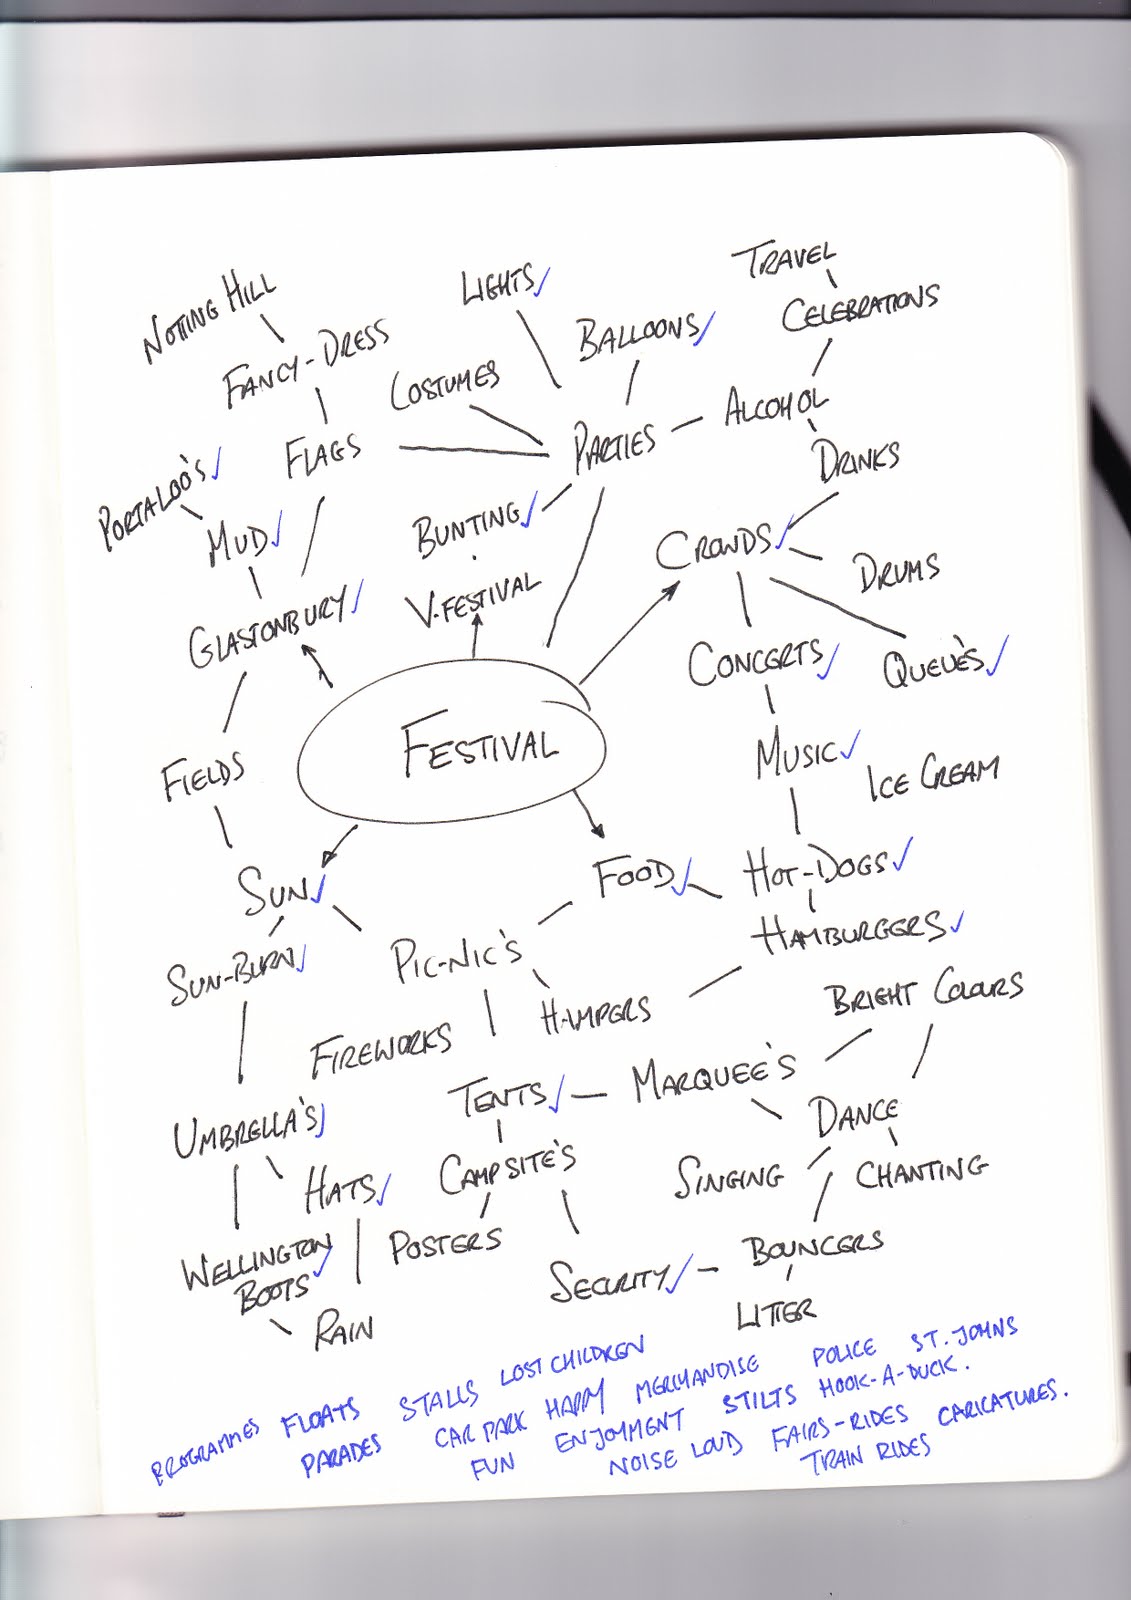 TRAVEL
LIGHTS
NOTTING HILL
CELEBRATIONS
BALLOONS
FANCY-DRESS
COSTUMES
ALCOHOL
FLAGS
PARTIES
DRINKS
PORTALOO'S
BUNTING
MUD
CROWDS
DRUMS
V-FESTIVAL
GLASTONBURY
CONCERTS
QUEUE'S
FESTIVAL
MUSIC
ICE CREAM
FIELDS
FOOD
HOT-DOGS
SUN
HAMBURGERS
PIC-NIC'S
SUN-BURN
HAMPERS
BRIGHT COLOURS
FIREWORKS
MARQUEE'S
TENTS
DANCE
UMBRELLA'S
CAMPSITE'S
SINGING
CHANTING
HATS
POSTERS
BOUNCERS
WELLINGTON
BOOTS
SECURITY
LITTER
RAIN
LOST CHILDREN
POLICE ST. JOHNS
PROGRAMMES FLOATS STALLS
HAPPY MERCHANDISE
STILTS HOOK-A-DUCK.
PARADES CAR PARK
ENJOYMENT
FAIRS-RIDES CARICATURES.
FUN
NOISE LOUD
TRAIN RIDES